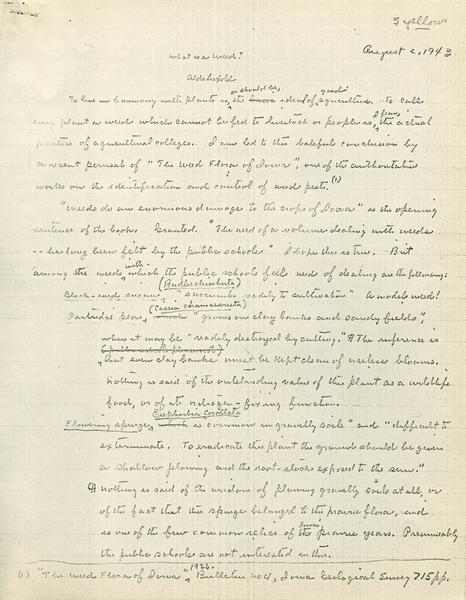 3 yellow
August 2, 1943
What is a Weed?
Aldo Leopold
or should be, good
To live in harmony with plants is, the basic ideal of agriculture. To call
every plant a weed which cannot be fed to livestock or people is, I fear, the actual
practice of agricultural colleges. I am led to this baleful conclusion by
a recent perusal of "The Weed Flora of Iowa", one of the authoritative
works on the identification and control of weed pests. (1)
"Weeds do an enormous damage to the crops of Iowa" is the opening
sentence of the book. Granted. "The need of a volume dealing with weeds
-- has long been felt by the public schools." I hope this is true. But
among the weeds with which the public schools feel need of dealing are the following:
(Rudbeckia hirta)
Black-eyed susan "succumbs readily to cultivation" A model weed!
(Cassia chamaecrista)
Partridge pea, which "grows on clay banks and sandy fields",
where it may be "readily destroyed by cutting." The inference is
that even clay banks must be kept clean of useless blooms.
Nothing is said of the outstanding value of this plant as a wildlife
food, or of its nitrogen-fixing function.
Euphorbia corollata
Flowering spurge, which is "common in gravelly soils" and "difficult to
exterminate. To eradicate this plant the ground should be given
a shallow plowing and the root-stocks exposed to the sun."
¶ Nothing is said of the wisdom of plowing gravelly soils at all, or
of the fact that this spurge belonged to the prairie flora, and
is one of the few common relics of Iowa's prairie years. Presumably
the public schools are not interested in this.
(1) "The Weed Flora of Iowa", 1926. Bulletin No 4, Iowa Geological Survey 715 pp.